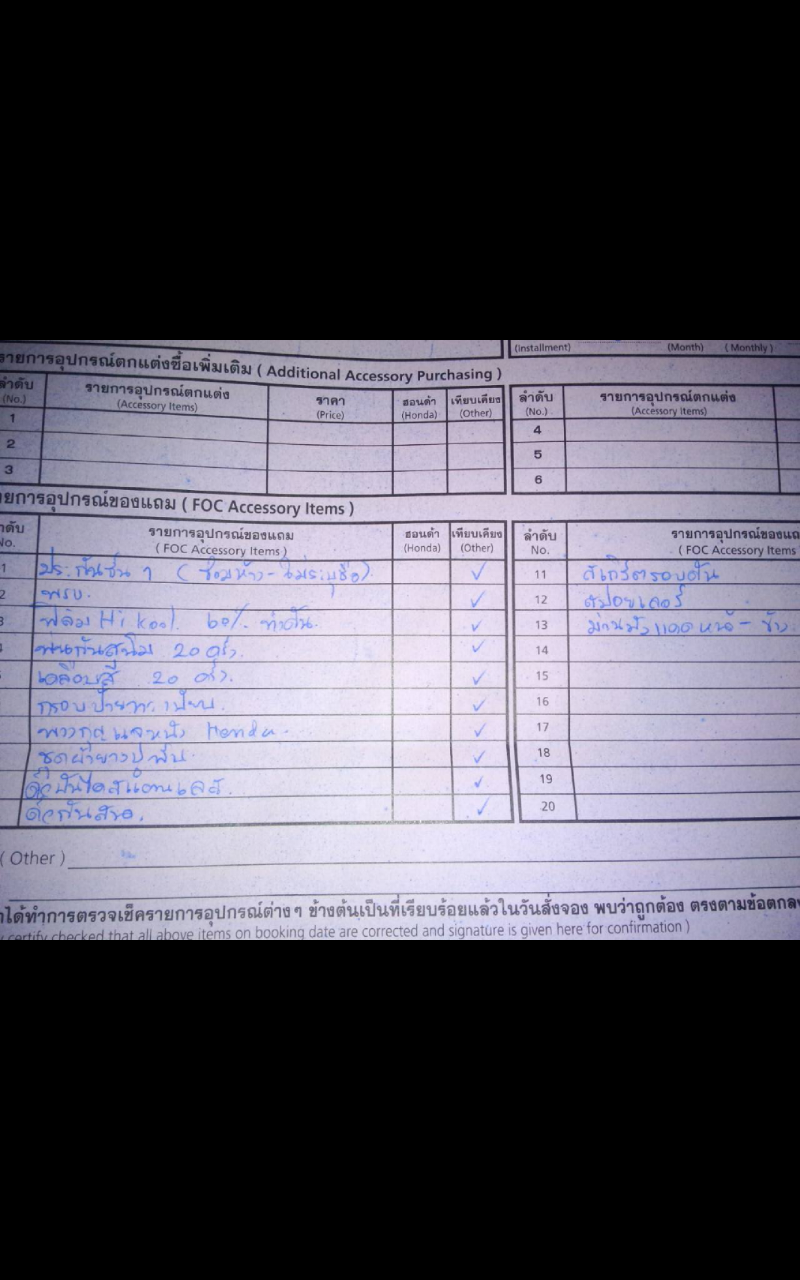 (Installment) (Month) (Monthly)
รายการอุปกรณ์ตกแต่งซื้อเพิ่มเติม ( Additional Accessory Purchasing )
ลำดับ รายการอุปกรณ์ตกแต่ง ราคา ฮอนด้า เทียบเคียง ลำดับ รายการอุปกรณ์ตกแต่ง
(No.) (Accessory Items) (Price) (Honda) (Other) (No.) (Accessory Items)
1 4
2 5
3 6
รายการอุปกรณ์ของแถม ( FOC Accessory Items )
ลำดับ รายการอุปกรณ์ของแถม ฮอนด้า เทียบเคียง ลำดับ รายการอุปกรณ์ของแถม
No. ( FOC Accessory Items ) (Honda) (Other) No. ( FOC Accessory Items
1 ประกันชั้น 1 ( ซ่อมห้าง - ไม่ระบุชื่อ) ✓ 11 สเกิร์ตรอบคัน
2 พรบ. ✓ 12 สปอยเลอร์
3 ฟิล์ม Hi kool 60% ทั้งคัน. ✓ 13 ม่านบังแดดหน้า -
พ่นกันสนิม 20 ครั้ง ✓ 14
เคลือบสี 20 ครั้ง. ✓ 15
กรอบป้ายทะเบียน. ✓ 16
พวงกุญแจหนัง Honda. ✓ 17
ชุดผ้ายางปูพื้น. ✓ 18
คิ้วบันไดสแตนเลส. ✓ 19
✓ 20
( Other )
ได้ทำการตรวจเช็ครายการอุปกรณ์ต่างๆ ข้างต้นเป็นที่เรียบร้อยแล้วในวันสั่งจอง พบว่าถูกต้อง ตรงตามข้อตกลง
certify checked that all above items on booking date are corrected and signature is given here for confirmation )